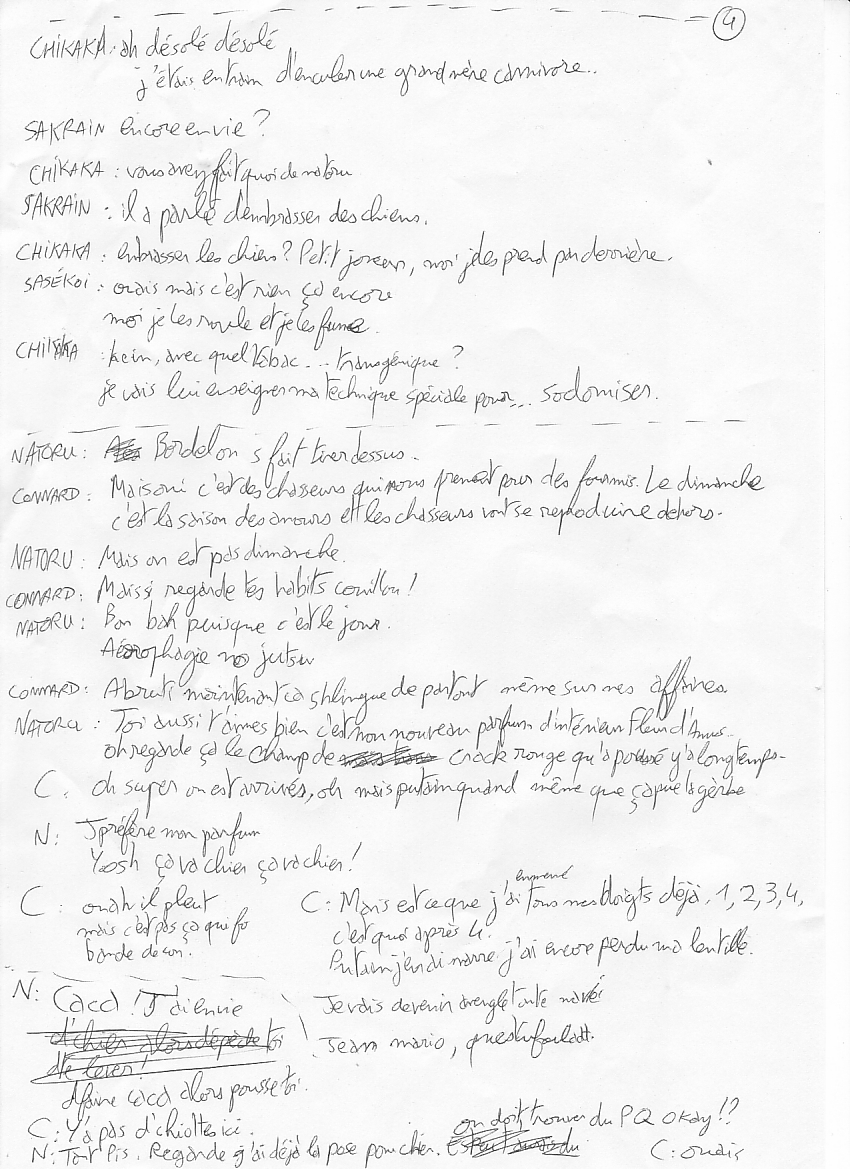 4
CHIKAKA : ah désolé désolé
j'étais entrain d'enculer une grand mère carnivore..
SAKRAIN encore en vie ?
CHIKAKA : vous avez fait quoi de natoru
SAKRAIN : il a parlé d'embrasser des chiens.
CHIKAKA : enbrasser les chiens ? Petit joueur, moi j'les prend par derrière.
SASÉKOI : ouais mais c'est rien ça encore
moi je les roule et je les fume.
CHIKAKA : hein, avec quel tabac... transgénique ?
je vais lui enseigner ma technique spéciale pour... sodomiser.
NATORU : Bordel on s fait tirer dessus.
CONNARD : Mais oui c'est des chasseurs qui nous prennent pour des fourmis. Le dimanche
c'est la saison des amours et les chasseurs vont se reproduire dehors.
NATORU : Mais on est pas dimanche.
CONNARD : Mais si regarde tes habits couillon !
NATORU : Bon bah puisque c'est le jour.
Aérophagie no jutsu
CONNARD : Abruti maintenant ça shlingue de partout même sur mes affaires.
NATORU : Toi aussi t'aimes bien c'est mon nouveau parfum d'intérieur Fleur d'Anus..
oh regarde ça le champ de crack rouge qu'a poussé y'a longtemps.
C : Oh super on est arrivés, oh mais putain quand même que ça pue la gerbe
N : J'préfère mon parfum
Yosh ça va chier ça va chier !
C : ouah il pleut
mais c'est pas ça qui fo
bande de con.
C : Mais est ce que j'ai tous mes doigts déjà, 1, 2, 3, 4,
c'est quoi après 4.
Putain j'en ai marre j'ai encore perdu ma lentille.
Je vais devenir aveugle toute
Jean mario,
N : Caca ! J'ai envie
d'chier alors dépêche toi
d'te lever !
A faire caca alors pousse toi.
C : Y'a pas d'chiottes ici.
N : Tant Pis. Regarde j'ai déjà la pose pour chier. on doit trouver du PQ okay !?
C : ouais